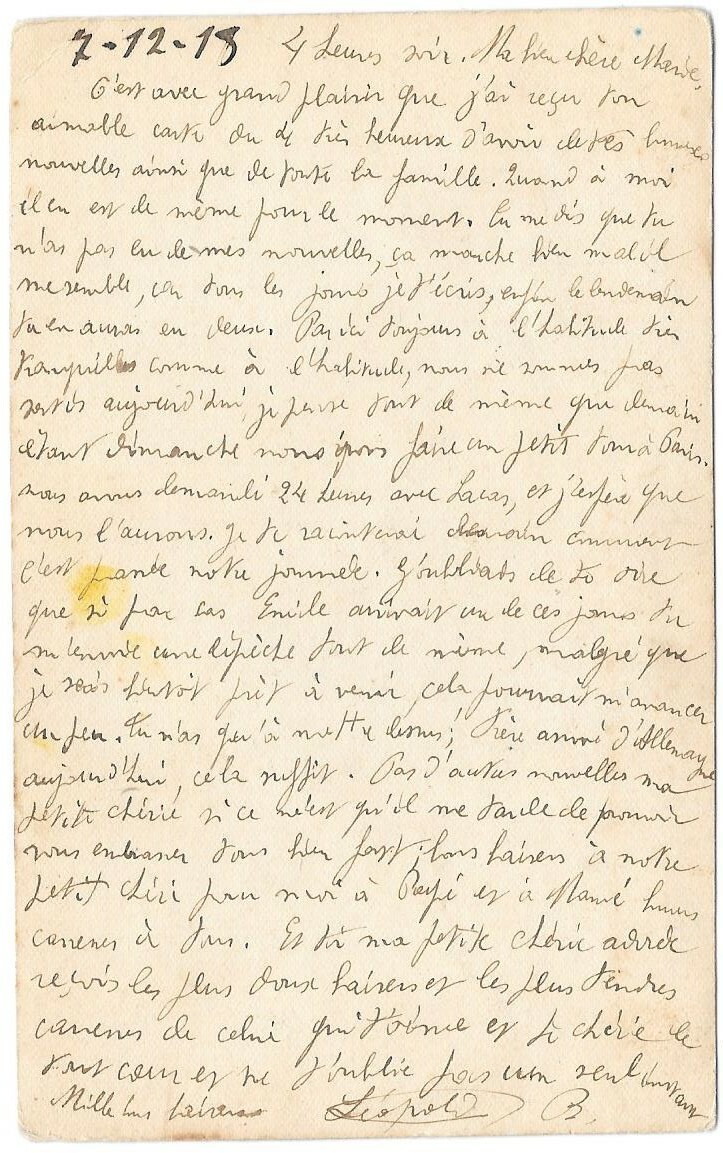 7-12-18 4 heures soir. Ma bien chère Marie,
C'est avec grand plaisir que j'ai reçu ton
aimable carte du 4 très heureux d'avoir de tes bonnes
nouvelles ainsi que de toute la famille. Quand à moi
il en est de même pour le moment. Tu me dis que tu
n'as pas eu de mes nouvelles, ça marche bien mal il
me semble, car tous les jours je t'écris, enfin le lendemain
tu en auras eu deux. Par ici toujours à l'habitude très
tranquilles comme à l'habitude, nous ne sommes pas
sortis aujourd'hui, je pense tout de même que demain
étant dimanche nous irons faire un petit tour à Paris.
nous avons demandé 24 heures avec Lacas, et j'espère que
nous l'aurons. Je te raconterai demain comment
c'est passée notre journée. J'oubliais de te dire
que si par cas Emile arrivait un de ces jours tu
m'envoie une dépêche tout de même, malgré que
je sois bientôt prêt à venir, cela pourrait m'avancer
un peu. Tu n'as qu'à mettre dessus; Frère arrivé d'Allemagne
aujourd'hui, cela suffit. Pas d'autres nouvelles ma
petite chérie si ce n'est qu'il me tarde de pouvoir
vous embrasser tous bien fort; bons baisers à notre
petit chéri pour moi à Papé et à Mamé bonnes
caresses à tous. Et toi ma petite chérie adorée
reçois les plus doux baisers et les plus tendres
caresses de celui qui t'aime et te chérie de
tout cœur et ne t'oublie pas un seul instant
Mille bons baisers Léopold B.